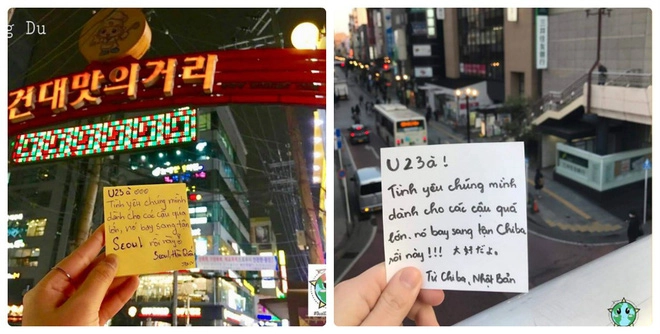 g Du
건대맛의거리
U23 à ooo
Tình yêu chúng mình
dành cho các cậu quá
lớn, nó bay sang tận
Seoul rồi này ý
Seoul, Hàn Quốc
U23 à !
Tình yêu chúng mình
dành cho các cậu quá
lớn. nó bay sang tận Chiba
rồi này !!! 大好だよ。
Từ Chiba, Nhật Bản